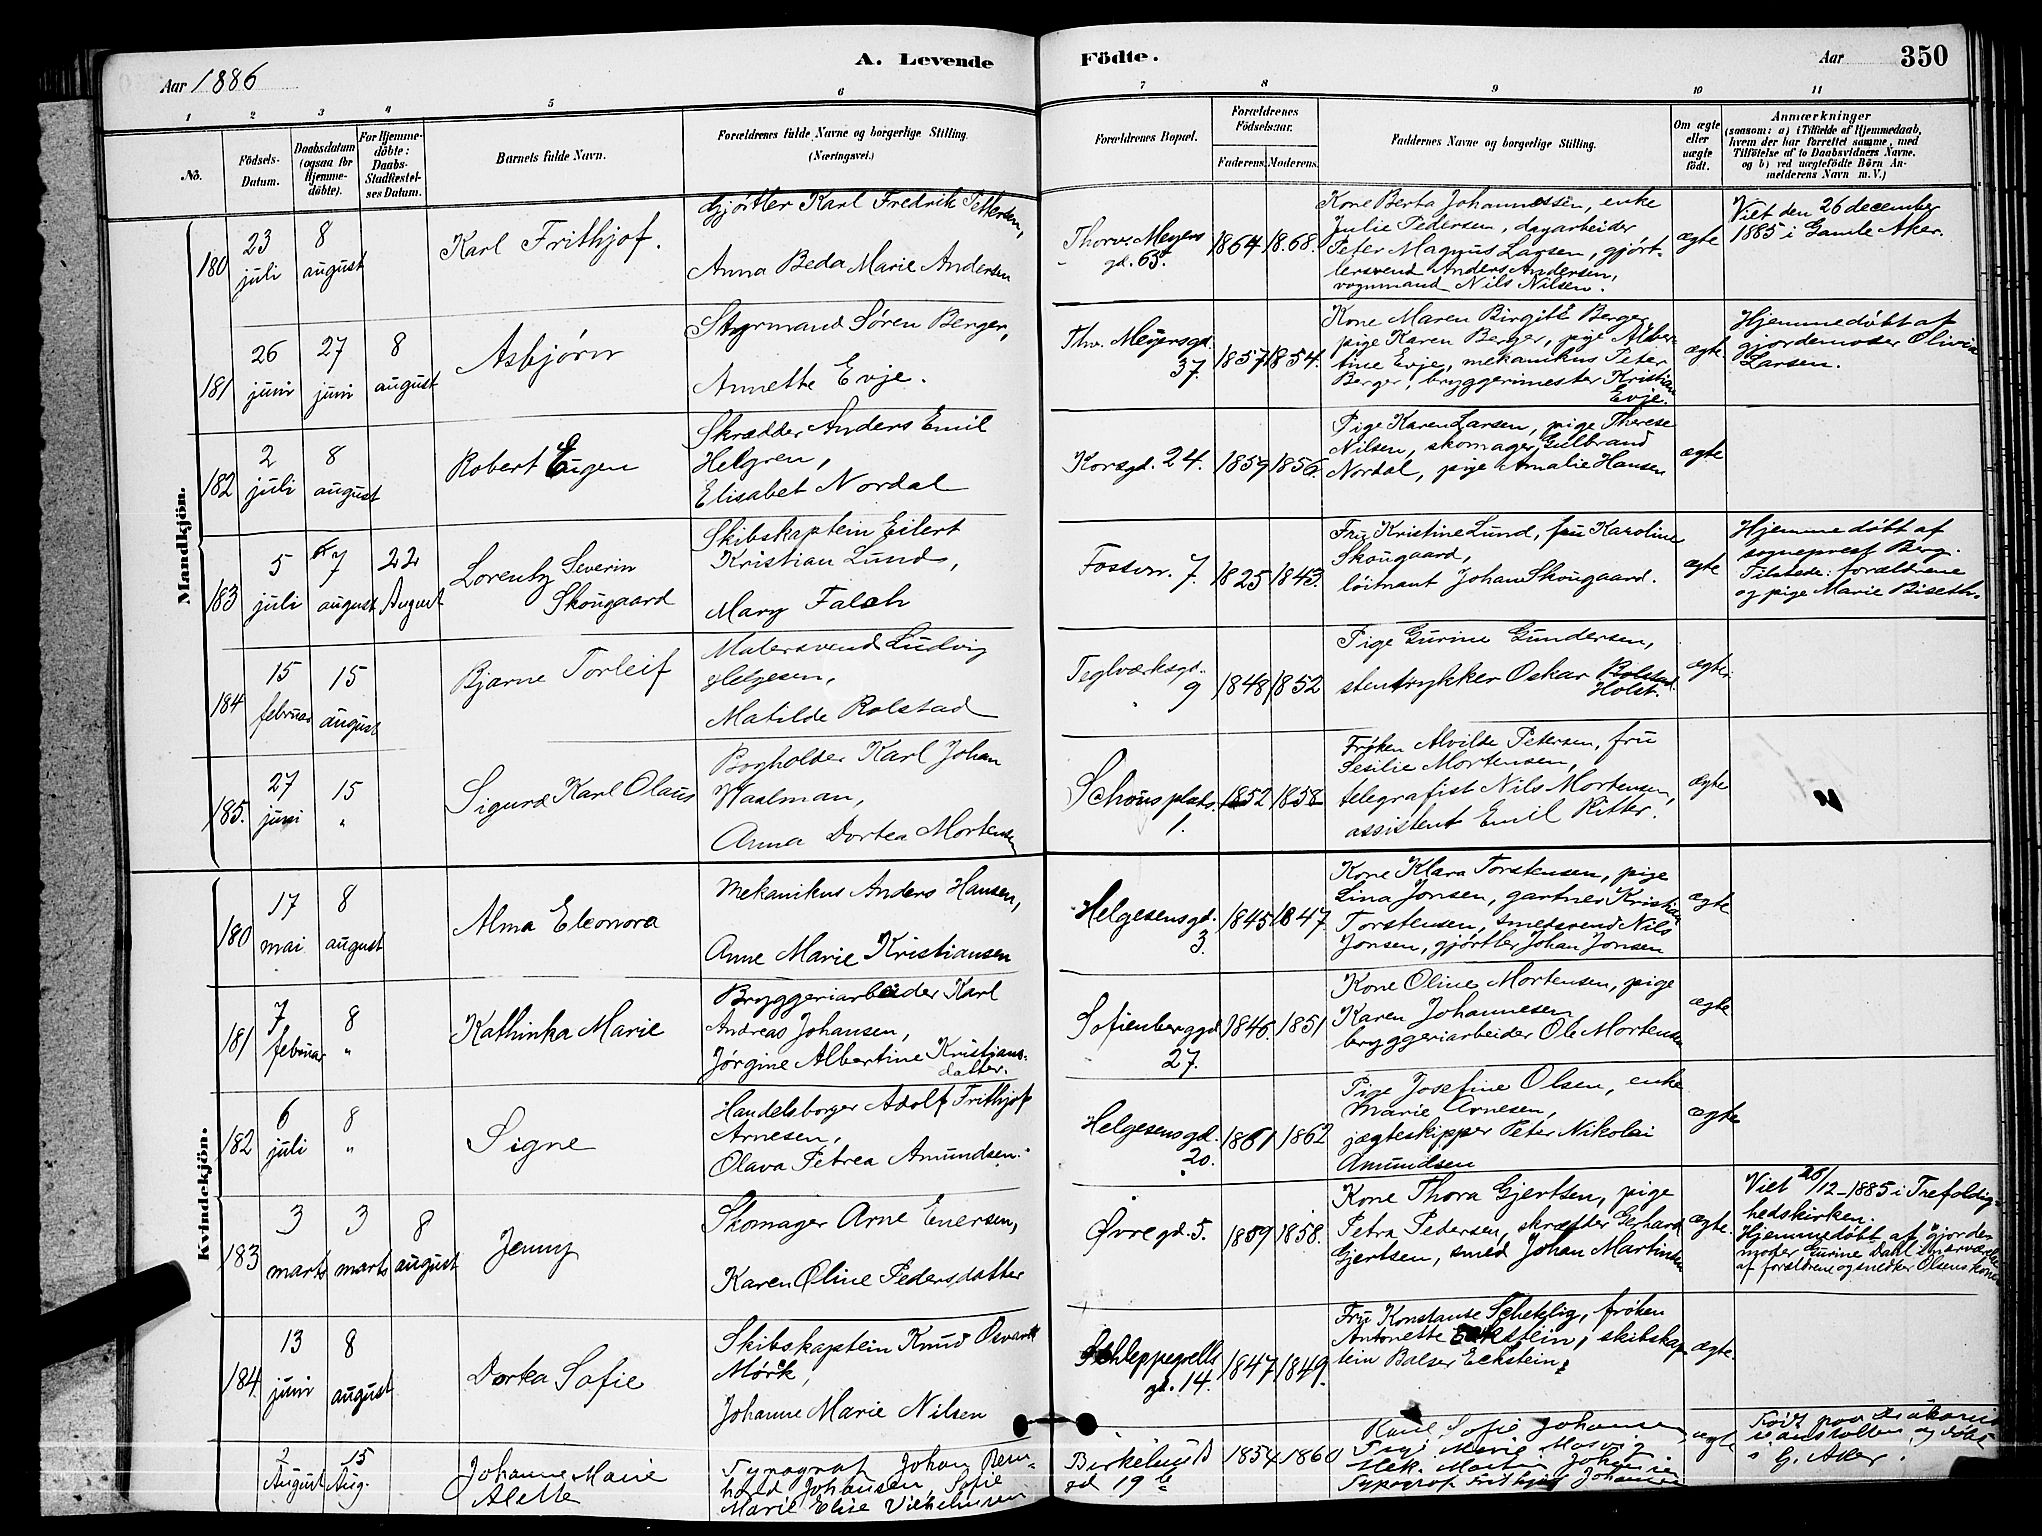 Aar 1886
A. Levende
Födte.
Aar
350
1
2
3
4
5
6
7
8
9
10
11
No.
Födsels-
Datum.
Daabsdatum
(ogsaa for
Hjemme-
döbte).
For Hjemme-
döbte:
Daabs-
Stadfæstel-
ses Datum.
Barnets fulde Navn.
Forældrenes fulde Navne og borgerlige Stilling.
(Næringsvei.)
Forældrenes Bopæl.
Forældrenes
Födselsaar.
Faderens.
Moderens.
Faddernes Navne og borgerlige Stilling.
Om ægte
eller
uægte
födt.
Anmærkninger
(saasom: a) i Tilfælde af Hjemmedaab,
hvem der har forrettet samme, med
Tilföielse af to Daabsvidners Navne,
og b) ved uægtefödte Börn An-
melderens Navn m. V.)
Mandkjön.
180
23
juli
8
august
Karl Frithjof.
Gjørtler Karl Fredrik Pettersen,
Anna Beda Marie Andersen
Thorv. Meyers
gd. 63.
1864
1868.
Kone Berta Johannessen, enke
Julie Pedersen, dagarbeider
Peter Magnus Lagsen, gjørt-
lersvend Anders Andersen,
vognmand Nils Nilsen.
ægte
Viet den 26 december
1885 i Gamle Aker.
181
26
juni
27
juni
8
august
Asbjørn
Styrmand Søren Berger,
Annette Evje.
Thv. Meyersgd.
37.
1857
1854.
Kone Maren Birgite Berger
pige Karen Berger, pige Alber-
tine Evje, mekanikus Peter
Berger, bryggerimester Kristian
Evje.
ægte.
Hjemmedøbt af
gjordemoder Olivia
Larsen.
182
2
juli
8
august
Robert Eugen
Skrædder Anders Emil
Helgren,
Elisabet Nordal
Korsgd. 24.
1859
1856.
Pige Karen Larsen, pige Therese
Nilsen, skomager Gulbrand
Nordal, pige Amalie Hansen
ægte
183
5
juli
7
august
22
August
Lorentz Severin
Skougaard
Skibskaptein Eilert
Kristian Lund,
Mary Falch
Fossvn. 7.
1825
1843.
Fru Kristine Lund, fru Karoline
Skougaard,
løitnant Johan Skougaard.
ægte
Hjemmedøbt af
sogneprest Berg.
Tilstede: forældrene
og pige Marie Biseth.
184
15
februar
15
august
Bjarne Torleif
Malersvend Ludvig
Helgesen,
Matilde Rolstad
Teglværksgd.
9
1848
1852
Pige Gurine Gundersen,
stentrykker Oskar Rolstad
Holst.
ægte.
185.
27
juni
15
"
Sigurd Karl Olaus
Bogholder Karl Johan
Waalman,
Anna Dortea Mortensen
Schous plads
1.
1852
1858
Frøken Alvilde Petersen, fru
Sesilie Mortensen,
telegrafist Nils Mortensen,
assistent Emil Ritter.
ægte
Kvindekjön.
180
17
mai
8
august
Alma Eleonora
Mekanikus Anders Hansen,
Anne Marie Kristiansen
Helgesensgd.
3.
1845
1847
Kone Klara Torstensen, pige
Lina Jonsen, gartner Kristian
Torstensen, smedsvend Nils
Jonsen, gjørtler Johan Jonsen
ægte
181
7
februar
8
"
Kathinka Marie
Bryggeriarbeider Karl
Andreas Johansen,
Jørgine Albertine Kristians-
datter.
Sofienberggd
27.
1846.
1851
Kone Oline Mortensen, pige
Karen Johannesen
bryggeriarbeider Ole Mortensen
ægte
182
6
juli
8
"
Signe
Handelsborger Adolf Frithjof
Arnesen,
Olava Petrea Amundsen.
Helgesensgd.
20.
1861
1862
Pige Josefine Olsen, enke
Marie Arnesen,
jægteskipper Peter Nikolai
Amundsen
ægte
183
3
marts
3
marts
8
august
Jenny
Skomager Arne Enersen,
Karen Oline Pedersdatter
Øvregd. 5.
1859
1858.
Kone Thora Gjertsen, pige
Petra Pedersen, skræder Gerhard
Gjertsen, smed Johan Martinsen
ægte.
Viet 26/12-1885 i Trefoldig-
hedskirken.
Hjemmedøbt af gjorde-
moder Gurine Dahl i nærværelse
af forældrene og snedker Olsens kone
184.
13
juni
8
august
Dortea Sofie
Skibskaptein Knud Osvard
Mørk,
Johanne Marie Nilsen
Schleppegrells
gd. 14.
1847
1849.
Fru Konstanse Schetelig, frøken
Antonette Eckstein, skibskap-
tein Balser Eckstein.
ægte.
2
August
15
Aug.
Johanne Marie
Alette
Typograf Johan Rein-
hold Johansen, Sofie
Marie Elise Vilhelmsen
Birkelund
gd 19 b
1854
1860
Sofie Johansen
Pige Marie
Mek. Martin Johansen
Typograf Frithjof Johansen
ægte
Født paa Diakonis-
seanstalten og døbt
i G. Aker.